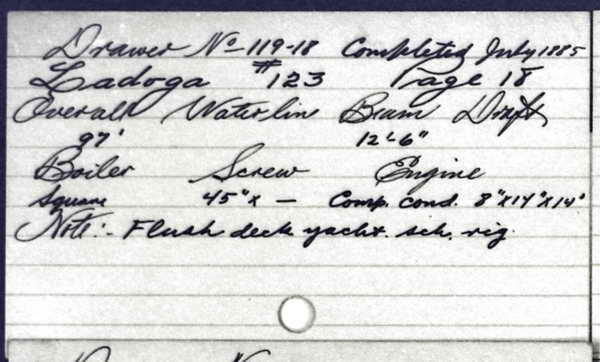 Drawer No - 119-18 Completed July 1885
Ladoga #123 Page 18
Overall Waterlin Beam Draft
97' 12'-6"
Boiler Screw Engine
Square 45" x — Comp. cond. 8"x14"x14"
Note:- Flush deck yacht. sch. rig.
Drawer No